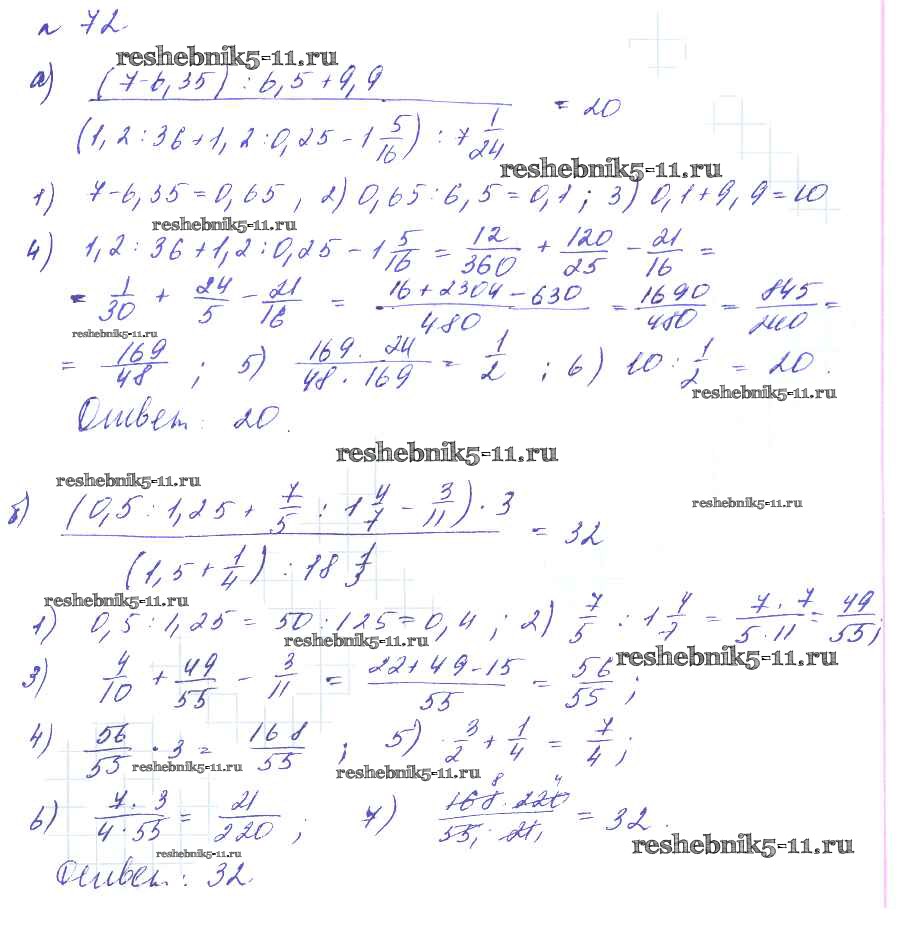 № 72.
reshebnik5-11.ru
а) (7-6,35) : 6,5 + 9,9
= 20
(1,2 : 36 + 1,2 : 0,25 - 1 5/16) : 7 1/24
reshebnik5-11.ru
1) 7-6,35 = 0,65 , 2) 0,65 : 6,5 = 0,1 ; 3) 0,1 + 9,9 = 10
reshebnik5-11.ru
4) 1,2 : 36 + 1,2 : 0,25 - 1 5/16 = 12/360 + 120/25 - 21/16 =
= 1/30 + 24/5 - 21/16 = (16 + 2304 - 630)/480 = 1690/480 = 845/240 =
reshebnik5-11.ru
= 169/48 ; 5) (169 · 24)/(48 · 169) = 1/2 ; 6) 10 : 1/2 = 20.
reshebnik5-11.ru
Ответ: 20.
reshebnik5-11.ru
reshebnik5-11.ru
reshebnik5-11.ru
б) (0,5 : 1,25 + 7/5 : 1 4/7 - 3/11) · 3
= 32
(1,5 + 1/4) : 18 1/3
reshebnik5-11.ru
1) 0,5 : 1,25 = 50 : 125 = 0,4 ; 2) 7/5 : 1 4/7 = (7 · 7)/(5 · 11) = 49/55 ;
reshebnik5-11.ru
reshebnik5-11.ru
3) 4/10 + 49/55 - 3/11 = (22 + 49 - 15)/55 = 56/55 ;
4) 56/55 · 3 = 168/55 ; 5) 3/2 + 1/4 = 7/4 ;
reshebnik5-11.ru
reshebnik5-11.ru
6) (7 · 3)/(4 · 55) = 21/220 ; 7) (168 · 220)/(55 · 21) = 32.
8 4
1 1
reshebnik5-11.ru
reshebnik5-11.ru
Ответ: 32.